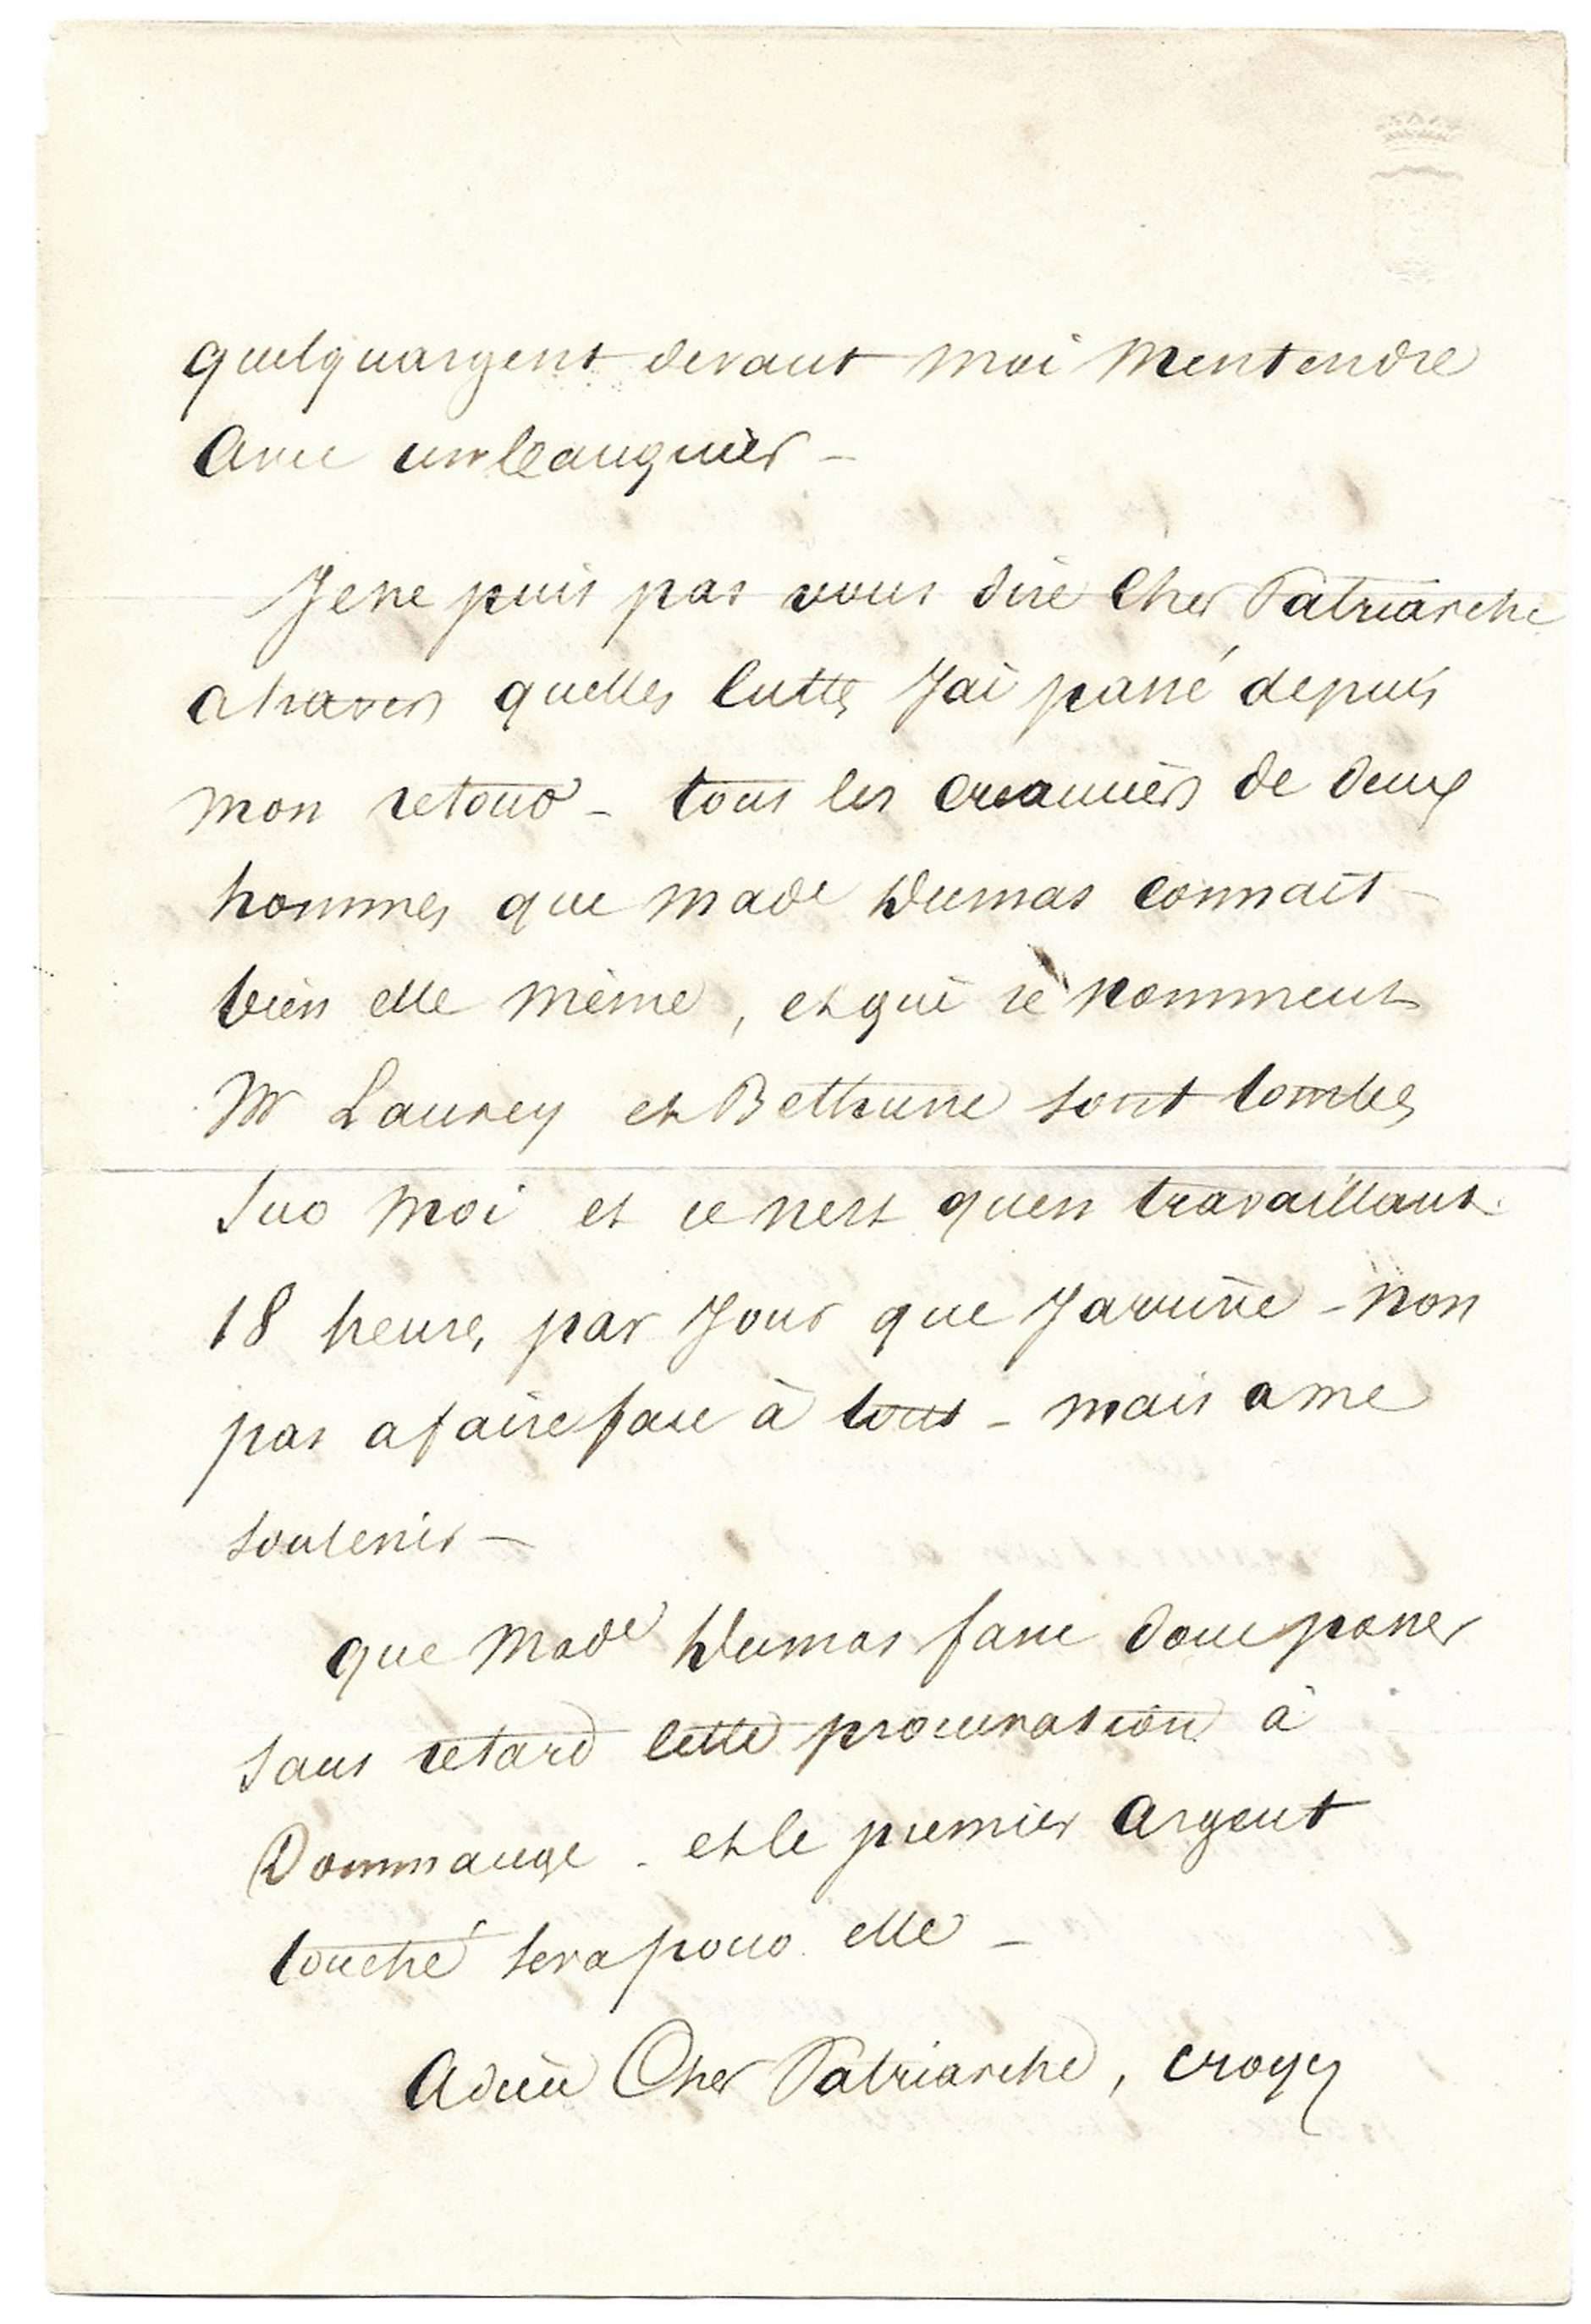 quelquargent devant moi mentendre
avec un banquier –
Je ne puis pas vous dire Cher Patriarche
a travers quelles luttes J'ai passé depuis
mon retour – tous les creanciers de deux
hommes que made Dumas connait
bien elle même, et qui se nomment
Mr Laurey et Bethune sont tombes
sur moi et ce nest quen travaillant
18 heures par Jour que Jarrive – non
pas a faire face à tout – mais a me
soutenir –
que Made Dumas fasse donc passer
sans retard cette procuration à
Dommange – et le premier argent
touché sera pour elle –
Adieu Cher Patriarche, croyez